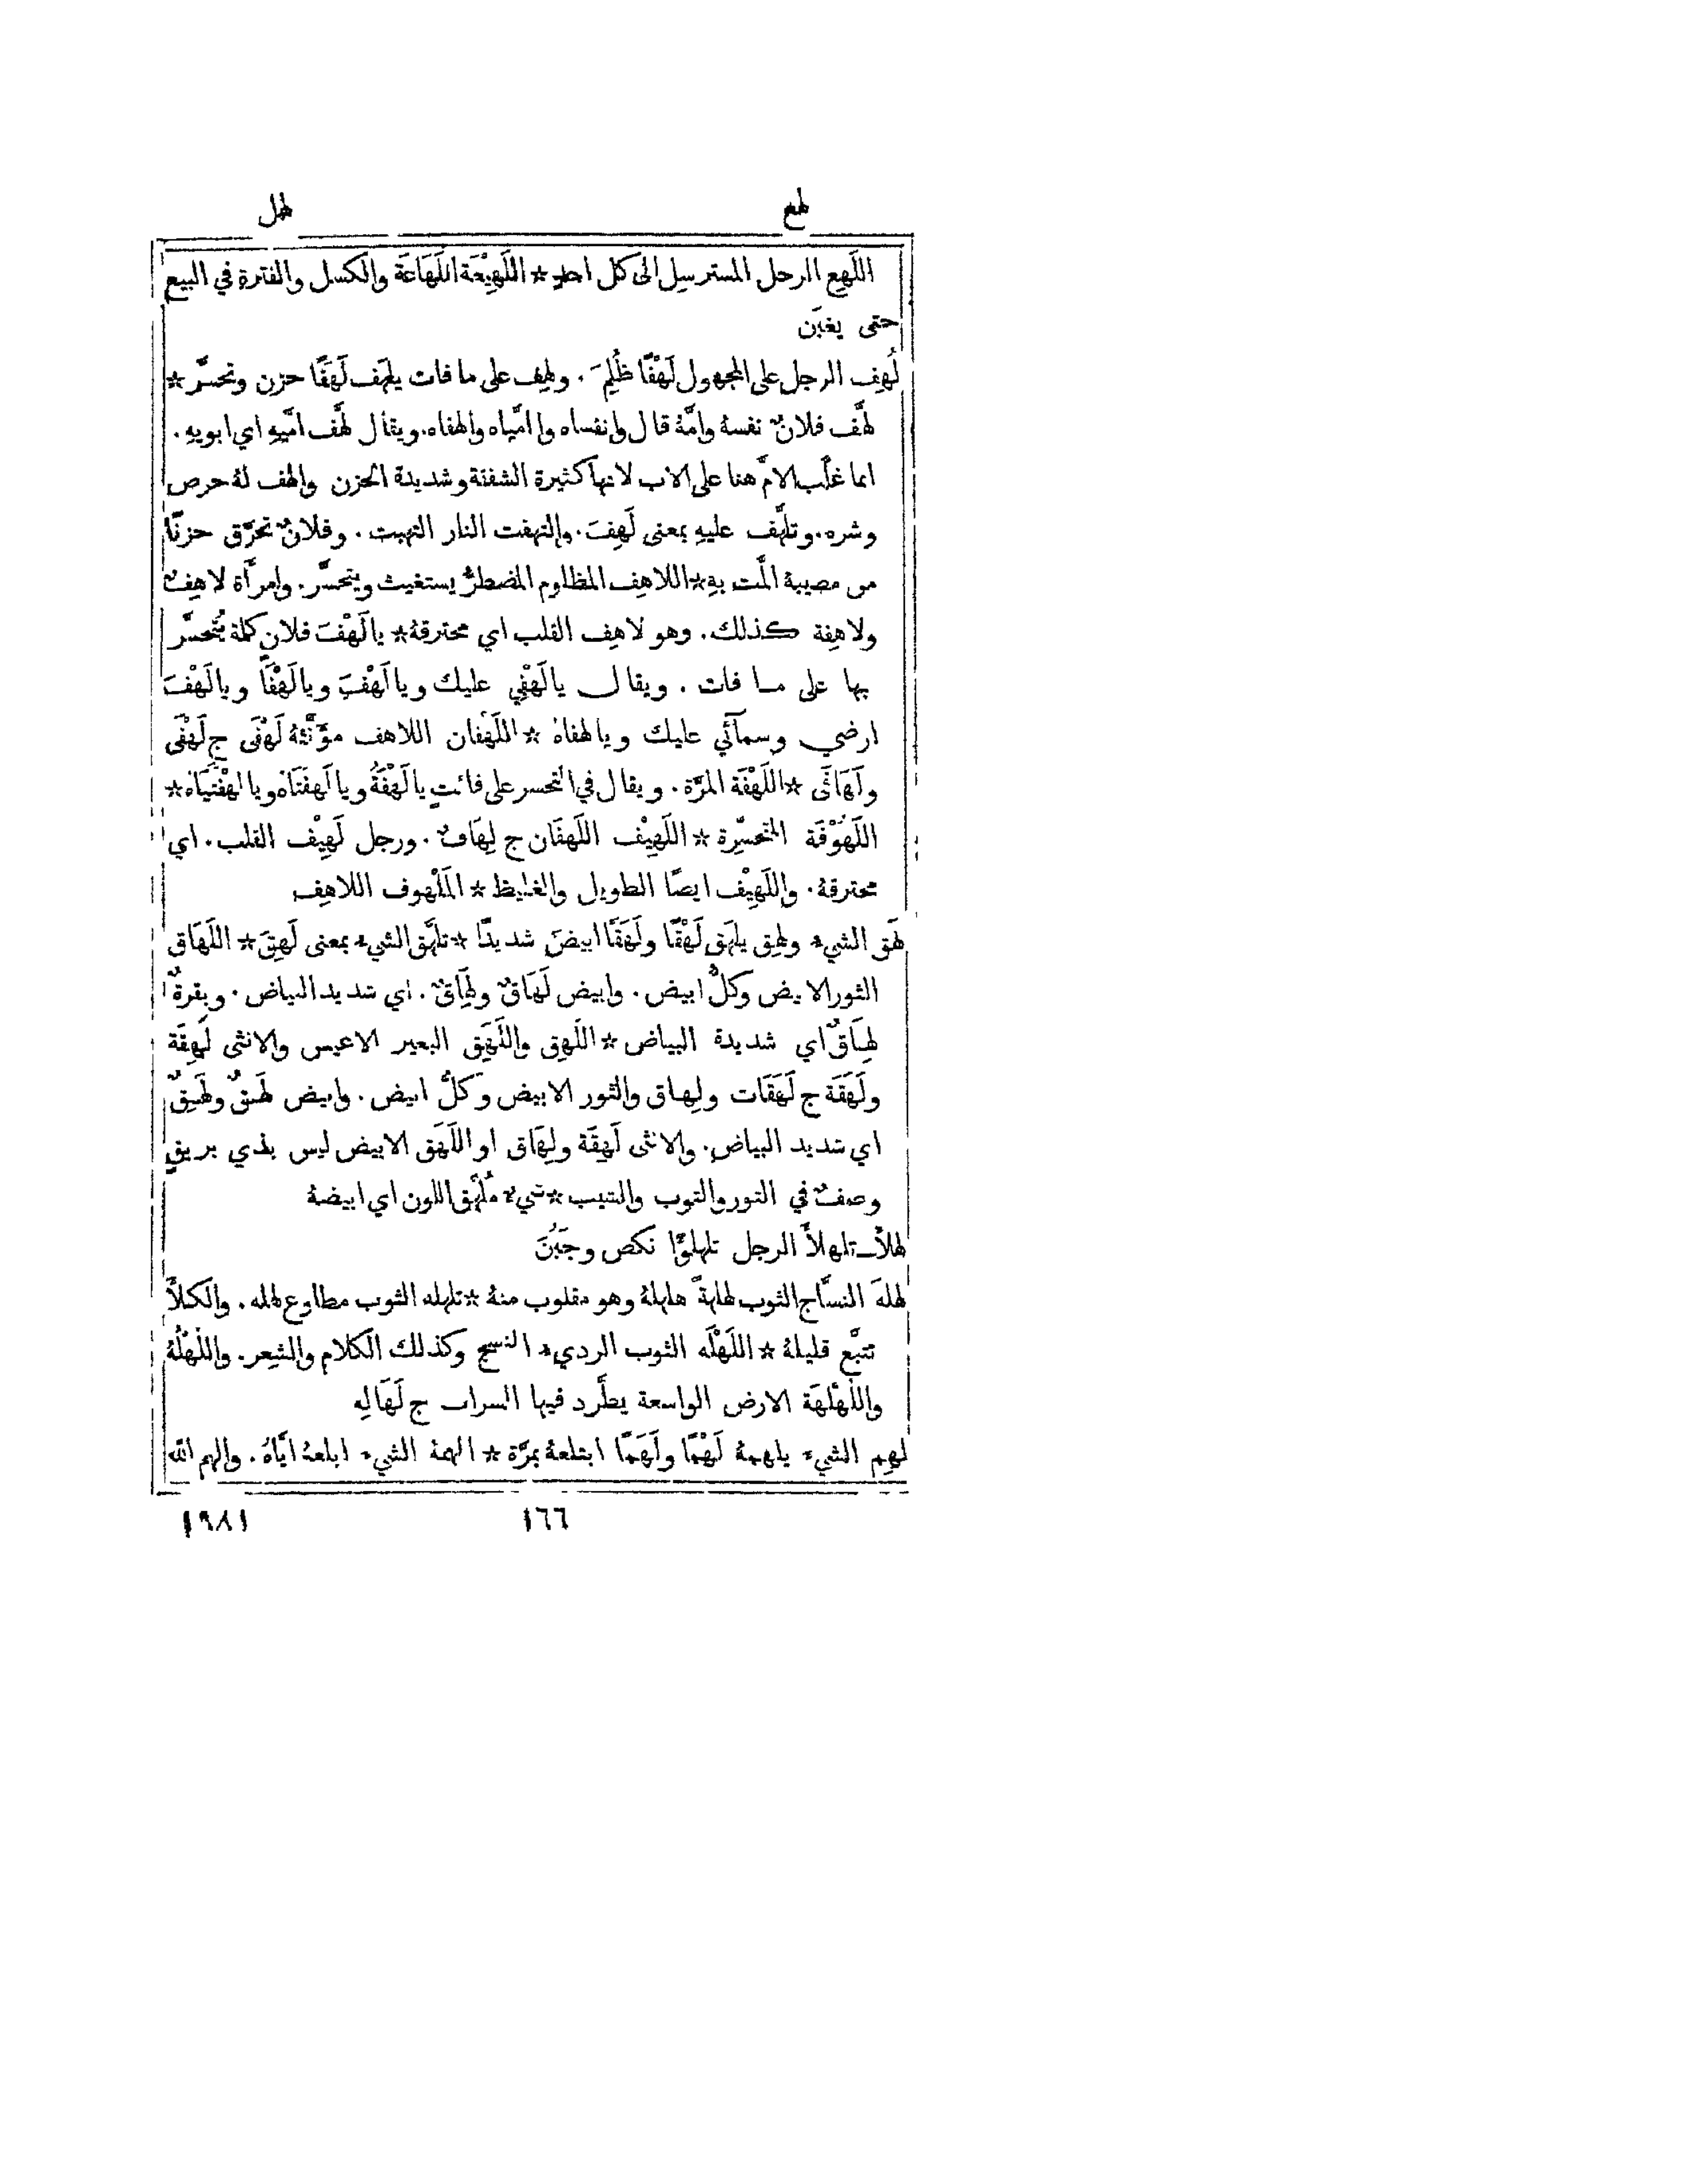 لهع لهل
اللَهِع الرجل المسترسِل الى كل احدٍ * اللَهِيْعَة اللَهَاعَة والكسل والفترة في البيع
حتى يغبَن
لُهِف الرجل على المجهول لَهْفًا ظُلِمَ . ولهِف على ما فات يلهَف لَهَفًا حزن وتحسَّر *
لهَّف فلانٌ نفسهُ وامَّهُ قال وانفساه وا امَّياه والهفاه. ويقال لهَّف امَّيهِ اي ابويهِ .
انما غلَّب الامّ هنا على الاب لانها كثيرة الشفقة وشديدة الحزن والهف لهُ حرص
وشره. وتلهَّف عليهِ بمعنى لَهِفَ. والتهفت النار التهبت . وفلانٌ تحرَّق حزنًا
من مصيبة المَّت بهِ * اللاهِف المظلوم المضطرُّ يستغيث ويتحسَّر. وامرأة لاهِفٌ
ولاهِفة كذلك. وهو لاهِف القلب اي محترقهُ * يا لَهْفَ فلان كلمة يُتحسَّر
بها على ما فات . ويقال يا لَهْفِي عليك ويا لَهْفَ ويا لَهْفَا ويا لَهْفَ
ارضي وسمآئي عليك ويا لهفاهُ * اللَهْفان اللاهف مؤَنَّثهُ لَهْفَى ج لَهْفَى
ولَهَافَى * اللَهْفَة المرَّة . ويقال في التحسر على فائتٍ يا لَهْفَةُ ويا لَهفَتَاه ويا لهْفَتِيَاه *
اللَهُوْفَة المتحسِّرة * اللَهِيْف اللَهفَان ج لِهَافٌ . ورجل لَهِيْف القلب . اي
محترقهُ . واللَهِيْف ايضًا الطويل والغليظ * المَلْهوف اللاهِف
لهَق الشيء ولهِق يلهَق لَهْقًا ولَهَقًا ابيضَ شديدًا * تلهَّق الشيء بمعنى لَهِقَ * اللَهَاق
الثور الابيض وكلُّ ابيض . وابيض لَهَاقٌ ولِهَاقٌ . اي شديد البياض . وبقرةٌ
لِهَاقٌ اي شديدة البياض * اللَهِق واللَهَق البعير الاعيس والانثى لَهِقَة
ولَهَقَة ج لَهَقَات ولِهاق والثور الابيض وكلُّ ابيض . وابيض لَهَقٌ ولَهِقٌ
اي شديد البياض. والانثى لَهِقَة ولِهَاق او اللَهَق الابيض ليس بذي بريقٍ
وصفٌ في الثور والثوب والشيب * شيء مُلَهَّق اللون اي ابيضهُ
لهلأ_تلهلأَ الرجل تلهلؤًا نكص وجَبُنَ
لهلهَ النسَّاج الثوب لهلهةً هلهلهُ وهو مقلوب منهُ * تلهله الثوب مطاوع لهله . والكلأَ
تتبَّع قليلهُ * اللَهْلَه الثوب الرديء النسج وكذلك الكلام والشِعر. واللُهْلُه
واللُهْلُهَة الارض الواسعة يطَّرد فيها السراب ج لَهَالِه
لهِم الشيء يلهمهُ لَهْمًا ولَهَمًا ابتلعهُ بمرَّة * الهمهُ الشيء ابلعهُ ايَّاهُ . والهم الله
١٩٨١ ١٦٦